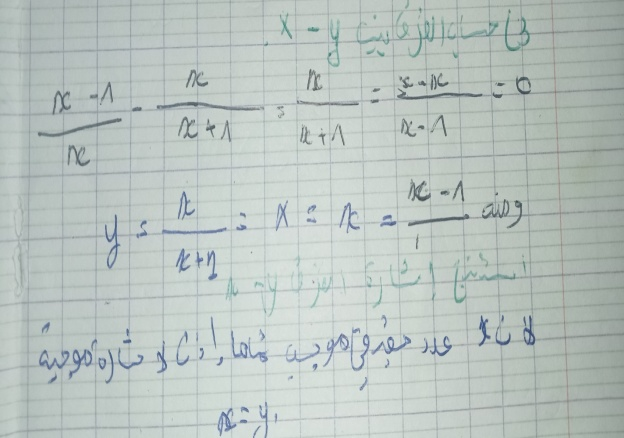 3) حساب الفرق بين X - y
x - 1 / x - x / x + 1 = x / x + 1 = x - x / x - 1 = 0
y = x / x + 1 = X = x = x - 1 / 1 ومنه
استنتج إشارة الفرق y - x
لأن x عدد حقيقي موجب تماما إذن موجبة
x = y